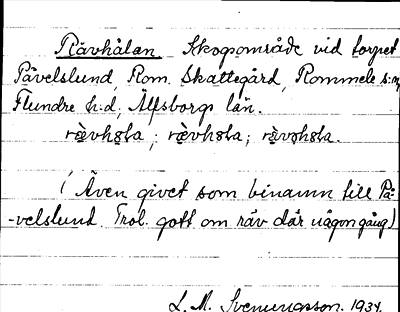 Rävhålan. Skogsområde vid torpet
Pävelslund, Rom. Skattegård, Rommele s:n,
Flundre h:d, Älfsborgs län.
(Även givet som binamn till Pä-
-velslund. Trol. gott om räv där någon gång)
L. M. Svenungsson. 1934.